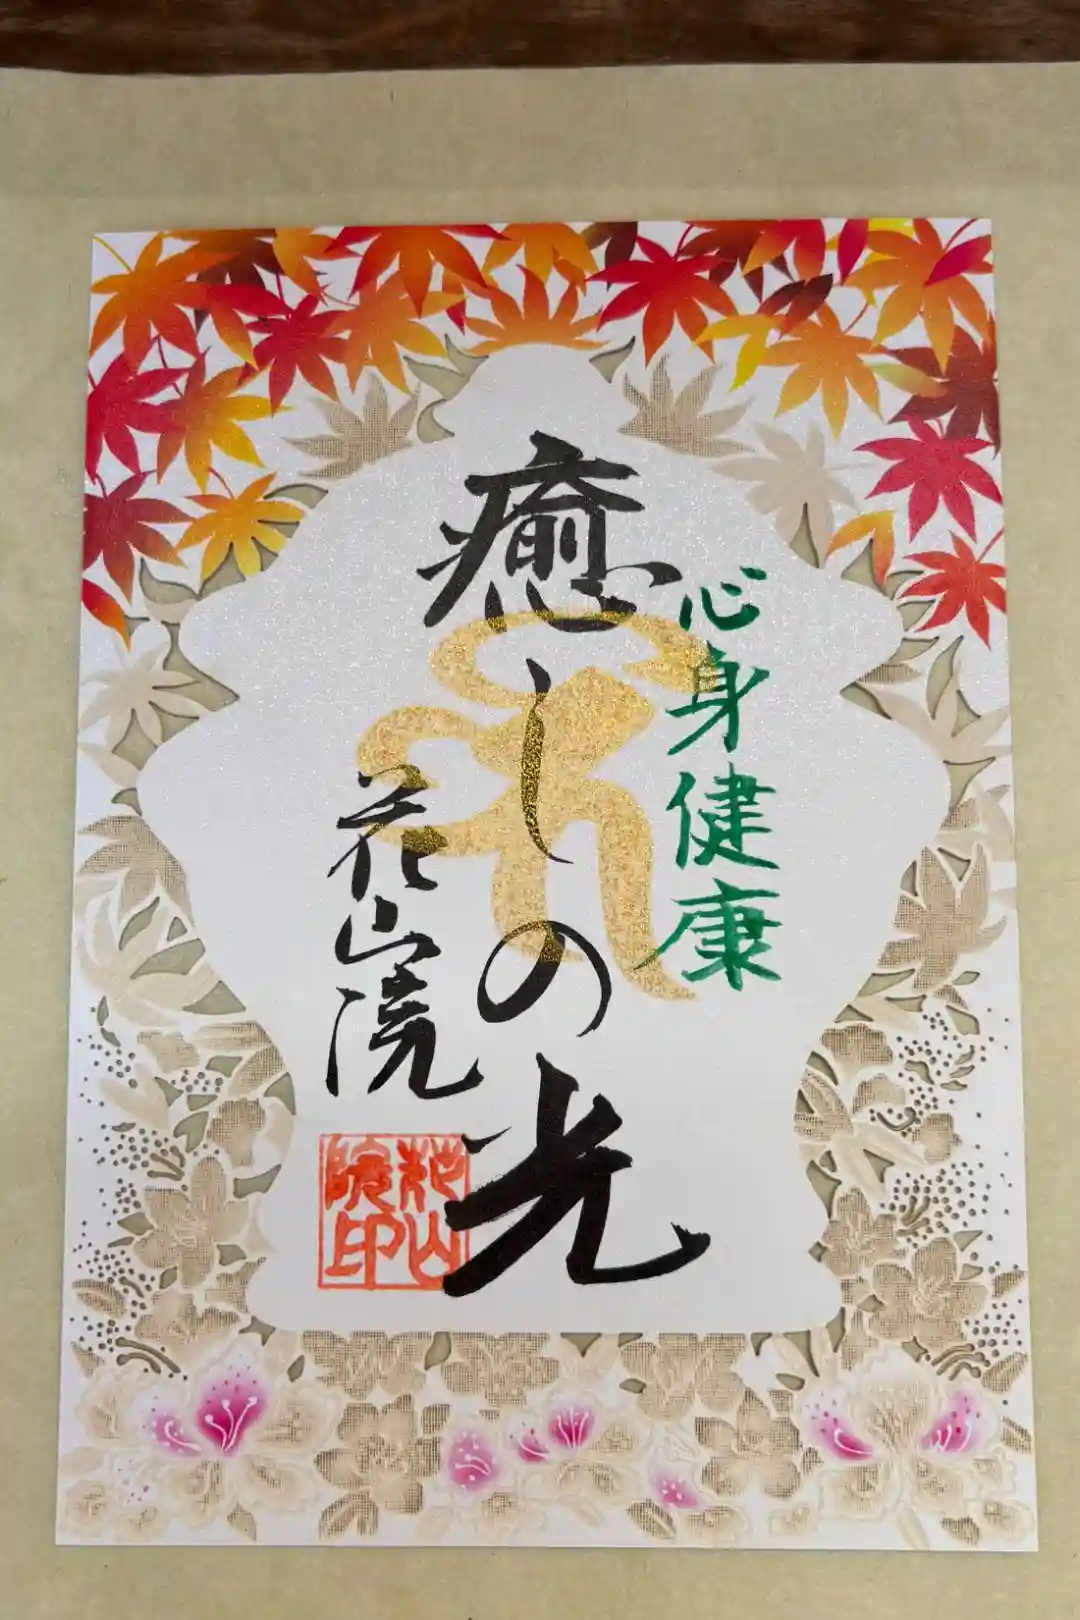 心身健康
癒しの光
花山院
花山
院印